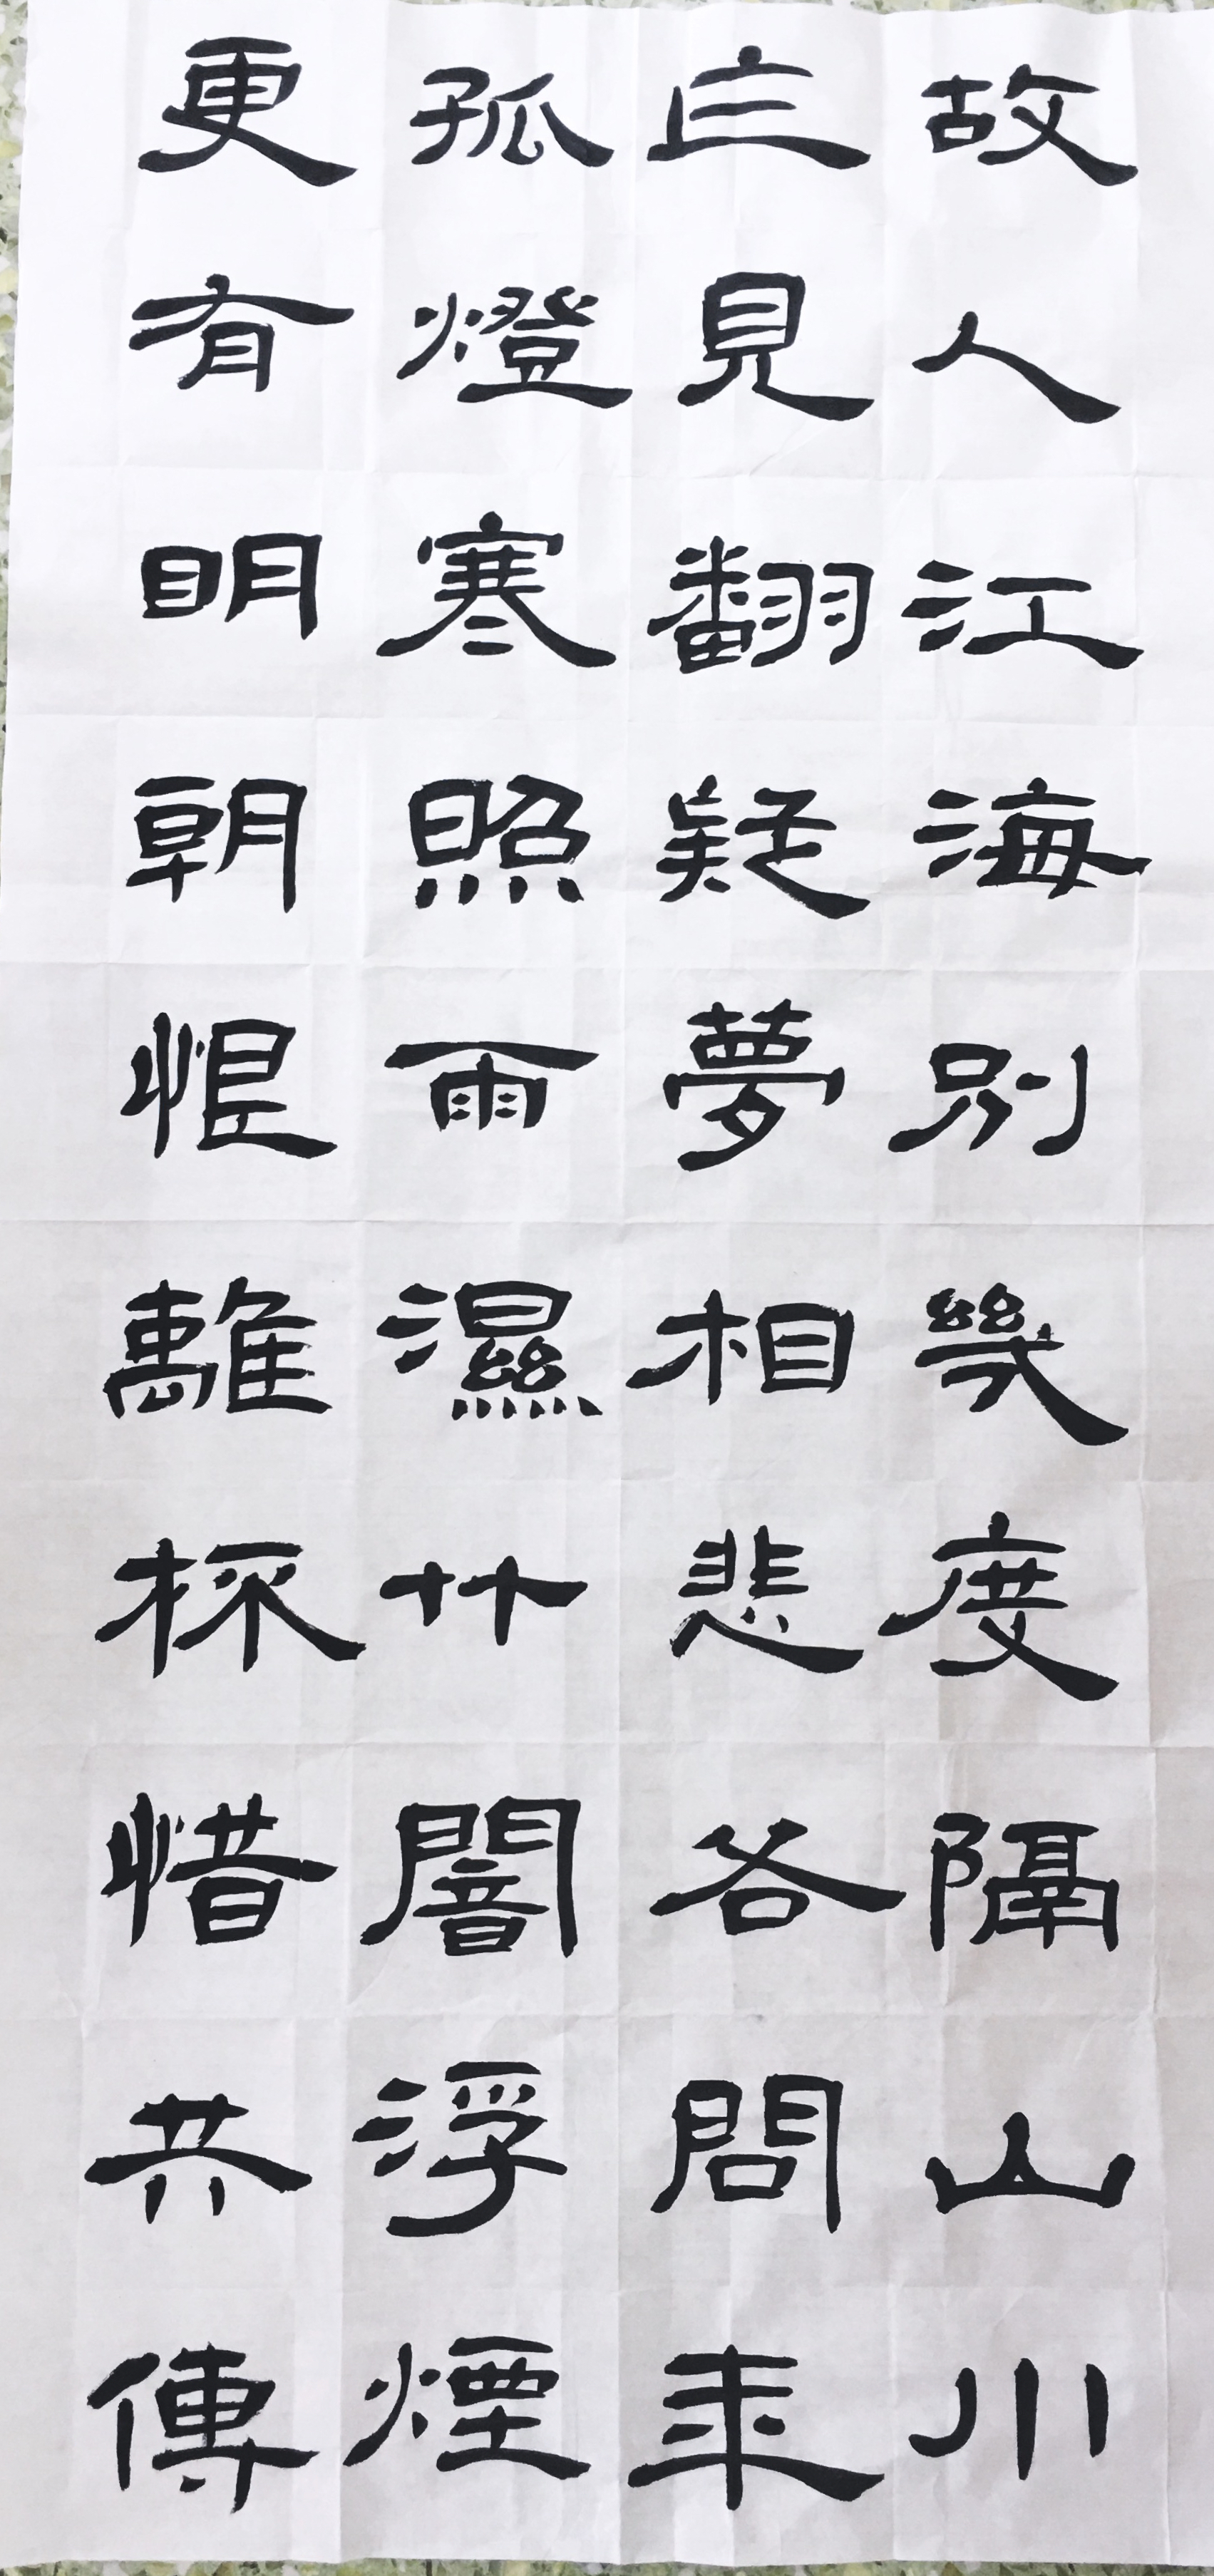 故人江海別幾度隔山川
乍見翻疑夢相悲各問年
孤燈寒照雨濕竹闇浮煙
更有明朝恨離杯惜共傳